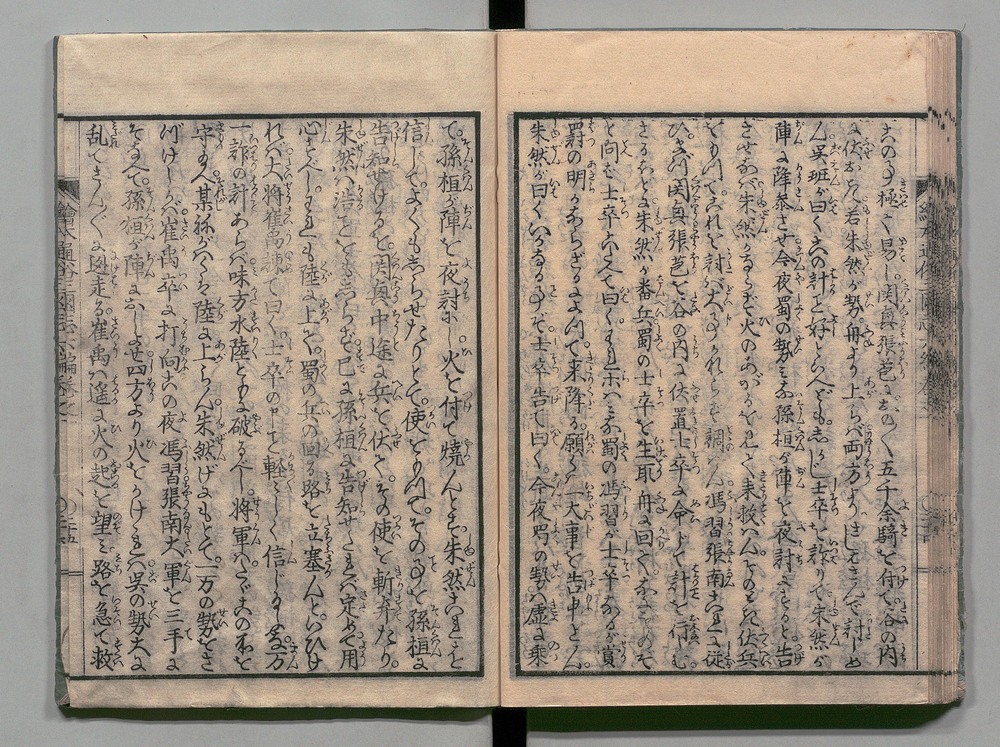 この事極て易し関興張苞におの〳〵五千余騎を付て谷の内
に伏おき若朱然が勢舟より上らバ両方よりはさんで討しめ
ん呉班が曰くこの計ごと好といへどもしかじ士卒を詐りて朱然が
陣に降参させ今夜蜀の勢こゝに孫桓が陣を夜討にすると告
させなバ朱然かならず火のあがるを見て来救ハんそのとき伏兵
をもつてこれを討バ大事ならんと調ふ馮習張南これに従
ひさバ関興張苞を谷の内に伏置士卒に命じて計を行しむ
さるほどに朱然が番兵蜀の士卒を生取舟に回てなにものぞ
と向ふ士卒こたへて曰くわれ〳〵ハ蜀の馮習が士卒なるが賞
罰の明かならざるによつて来降る願くハ一大事を告申さん
朱然が曰くいかなる事ぞ士卒告て曰く今夜蜀の勢虚に乗
て孫桓が陣を夜討にし火を付て焼んとす朱然これを
信じてよくもしらせたりとて使をもつてその事を孫桓に
告知せけるを関興中途に兵を伏てその使を斬弃たり
朱然ハ是をもしらず已に孫桓に告知せたれバ定めて用
心すべしわれも陸に上て蜀の兵の回る路を立塞んといひけ
れバ大将崔禹諫て曰く士卒の申す事軽〳〵しく信じ万
一詐の計あらバ味方水陸ともに破るべし将軍ハたゞこの所を
守り玉へ某孫がハり陸に上らん朱然げにもとて一万の勢をさ
づけしかバ崔禹卒に打向この夜馮習張南大軍を三手に
そなへて孫桓が陣におしよせ四方より火をかけしかバ呉の勢大に
乱てさん〴〵に逃走る崔禹ハ遥に火の起を望み路を急て救